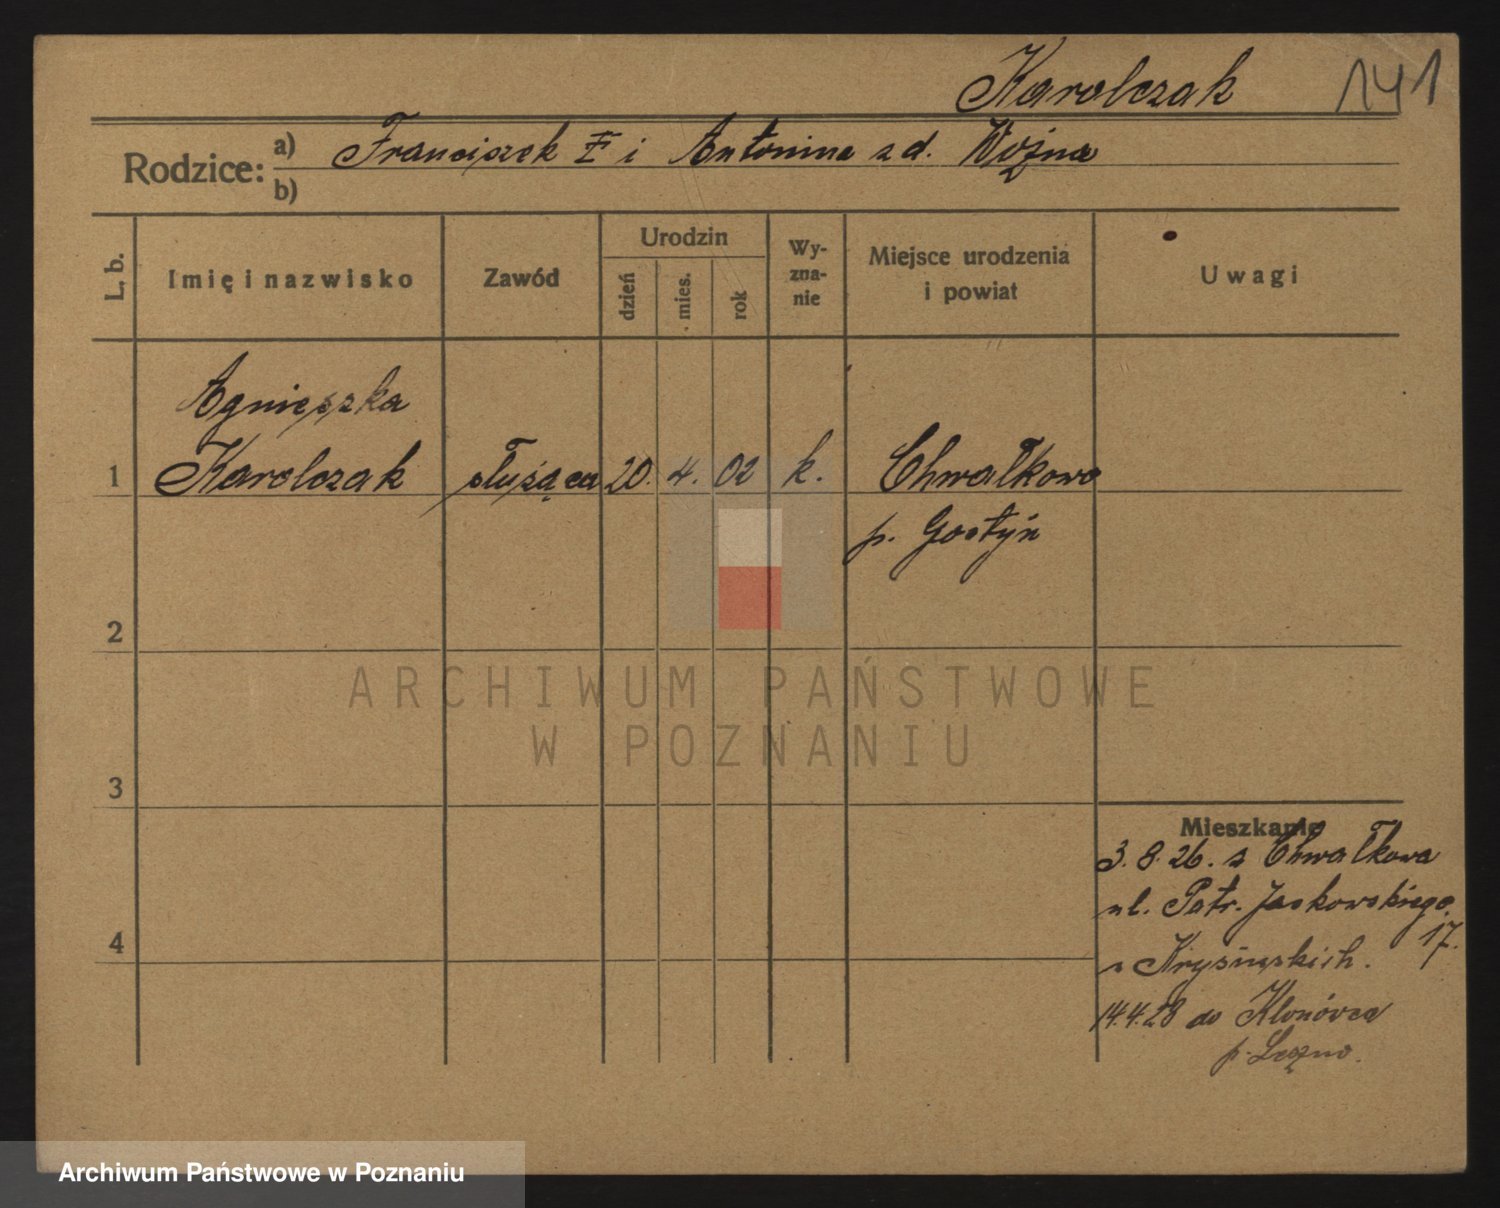 Karolczak 141
Rodzice: a) Franciszek i Antonina z d. Woźna
b)
L. b. Imię i nazwisko Zawód Urodzin dzień mies. rok Wy-zna-nie Miejsce urodzenia i powiat Uwagi
Agnieszka
1 Karolczak służąca 20. 4. 02 k. Chwałkowo
p. Gostyń
2
ARCHIWUM PAŃSTWOWE
W POZNANIU
3
Mieszkanie
3.8.26. z Chwałkowa
ul. Patr. Jackowskiego
17.
4
u Krysińskich.
14.4.28 do Klonówca
p. Leszno.
Archiwum Państwowe w Poznaniu